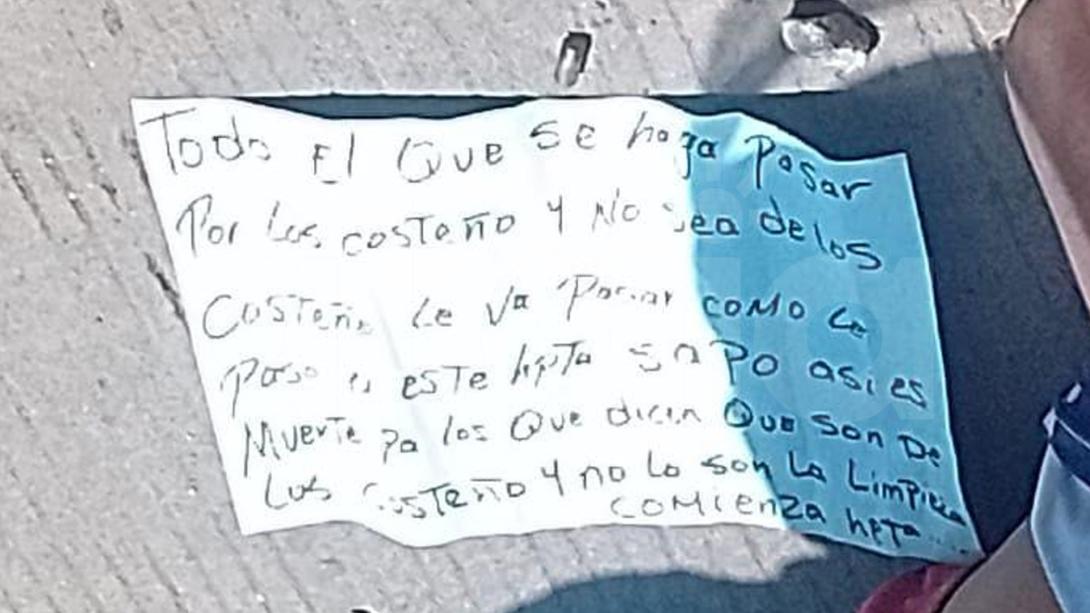 Todo El Que se haga Pasar
Por Los costeño Y No sea de los
Costeño Le Va Pasar COMO Le
Paso a este hpta SaPO asi es
Muerte pa los Que dicen Que Son De
Los Costeño Y no Lo son La Limpieza
comienza hpta...